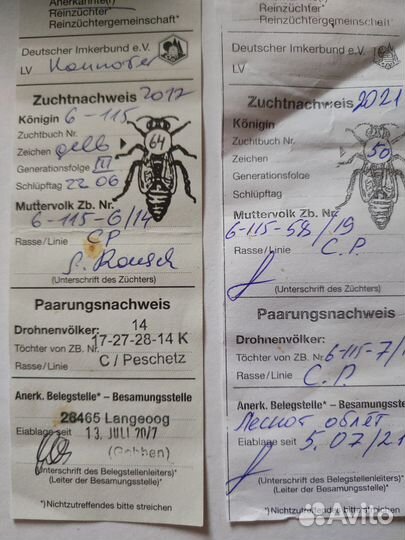 Anerkannte(r)
Reinzüchter*
Reinzüchtergemeinschaft*
Deutscher Imkerbund e.V.
LV Hannover
Zuchtnachweis 2017
Königin 6-115
Zuchtbuch Nr.
Zeichen gelb 64
Generationsfolge III
Schlüpftag 22 06
Muttervolk Zb. Nr.
6-115-6/14
Rasse/Linie CP
(Unterschrift des Züchters)
Paarungsnachweis
Drohnenvölker: 14
Töchter von ZB. Nr. 17-27-28-14 K
Rasse/Linie C / Peschetz
Anerk. Belegstelle* - Besamungsstelle
28465 Langeoog
Eiablage seit 13. JULI 2017
(Unterschrift des Belegstellenleiters)*
(Leiter der Besamungsstelle)*
*)Nichtzutreffendes bitte streichen
Reinzüchter*
Reinzüchtergemeinschaft
Deutscher Imkerbund e.V.
LV
Zuchtnachweis 2021
Königin
Zuchtbuch Nr.
Zeichen 50
Generationsfolge
Schlüpftag
Muttervolk Zb. Nr.
6-115-58/19
Rasse/Linie C.P.
(Unterschrift des Züchters)
Paarungsnachweis
Drohnenvölker:
Töchter von ZB. Nr. 6-115-7/
Rasse/Linie C.P.
Anerk. Belegstelle* - Besamungsste
облёт
Eiablage seit 5.07/21
(Unterschrift des Belegstellenleiters)*
(Leiter der Besamungsstelle)*
*)Nichtzutreffendes bitte streichen
Avito